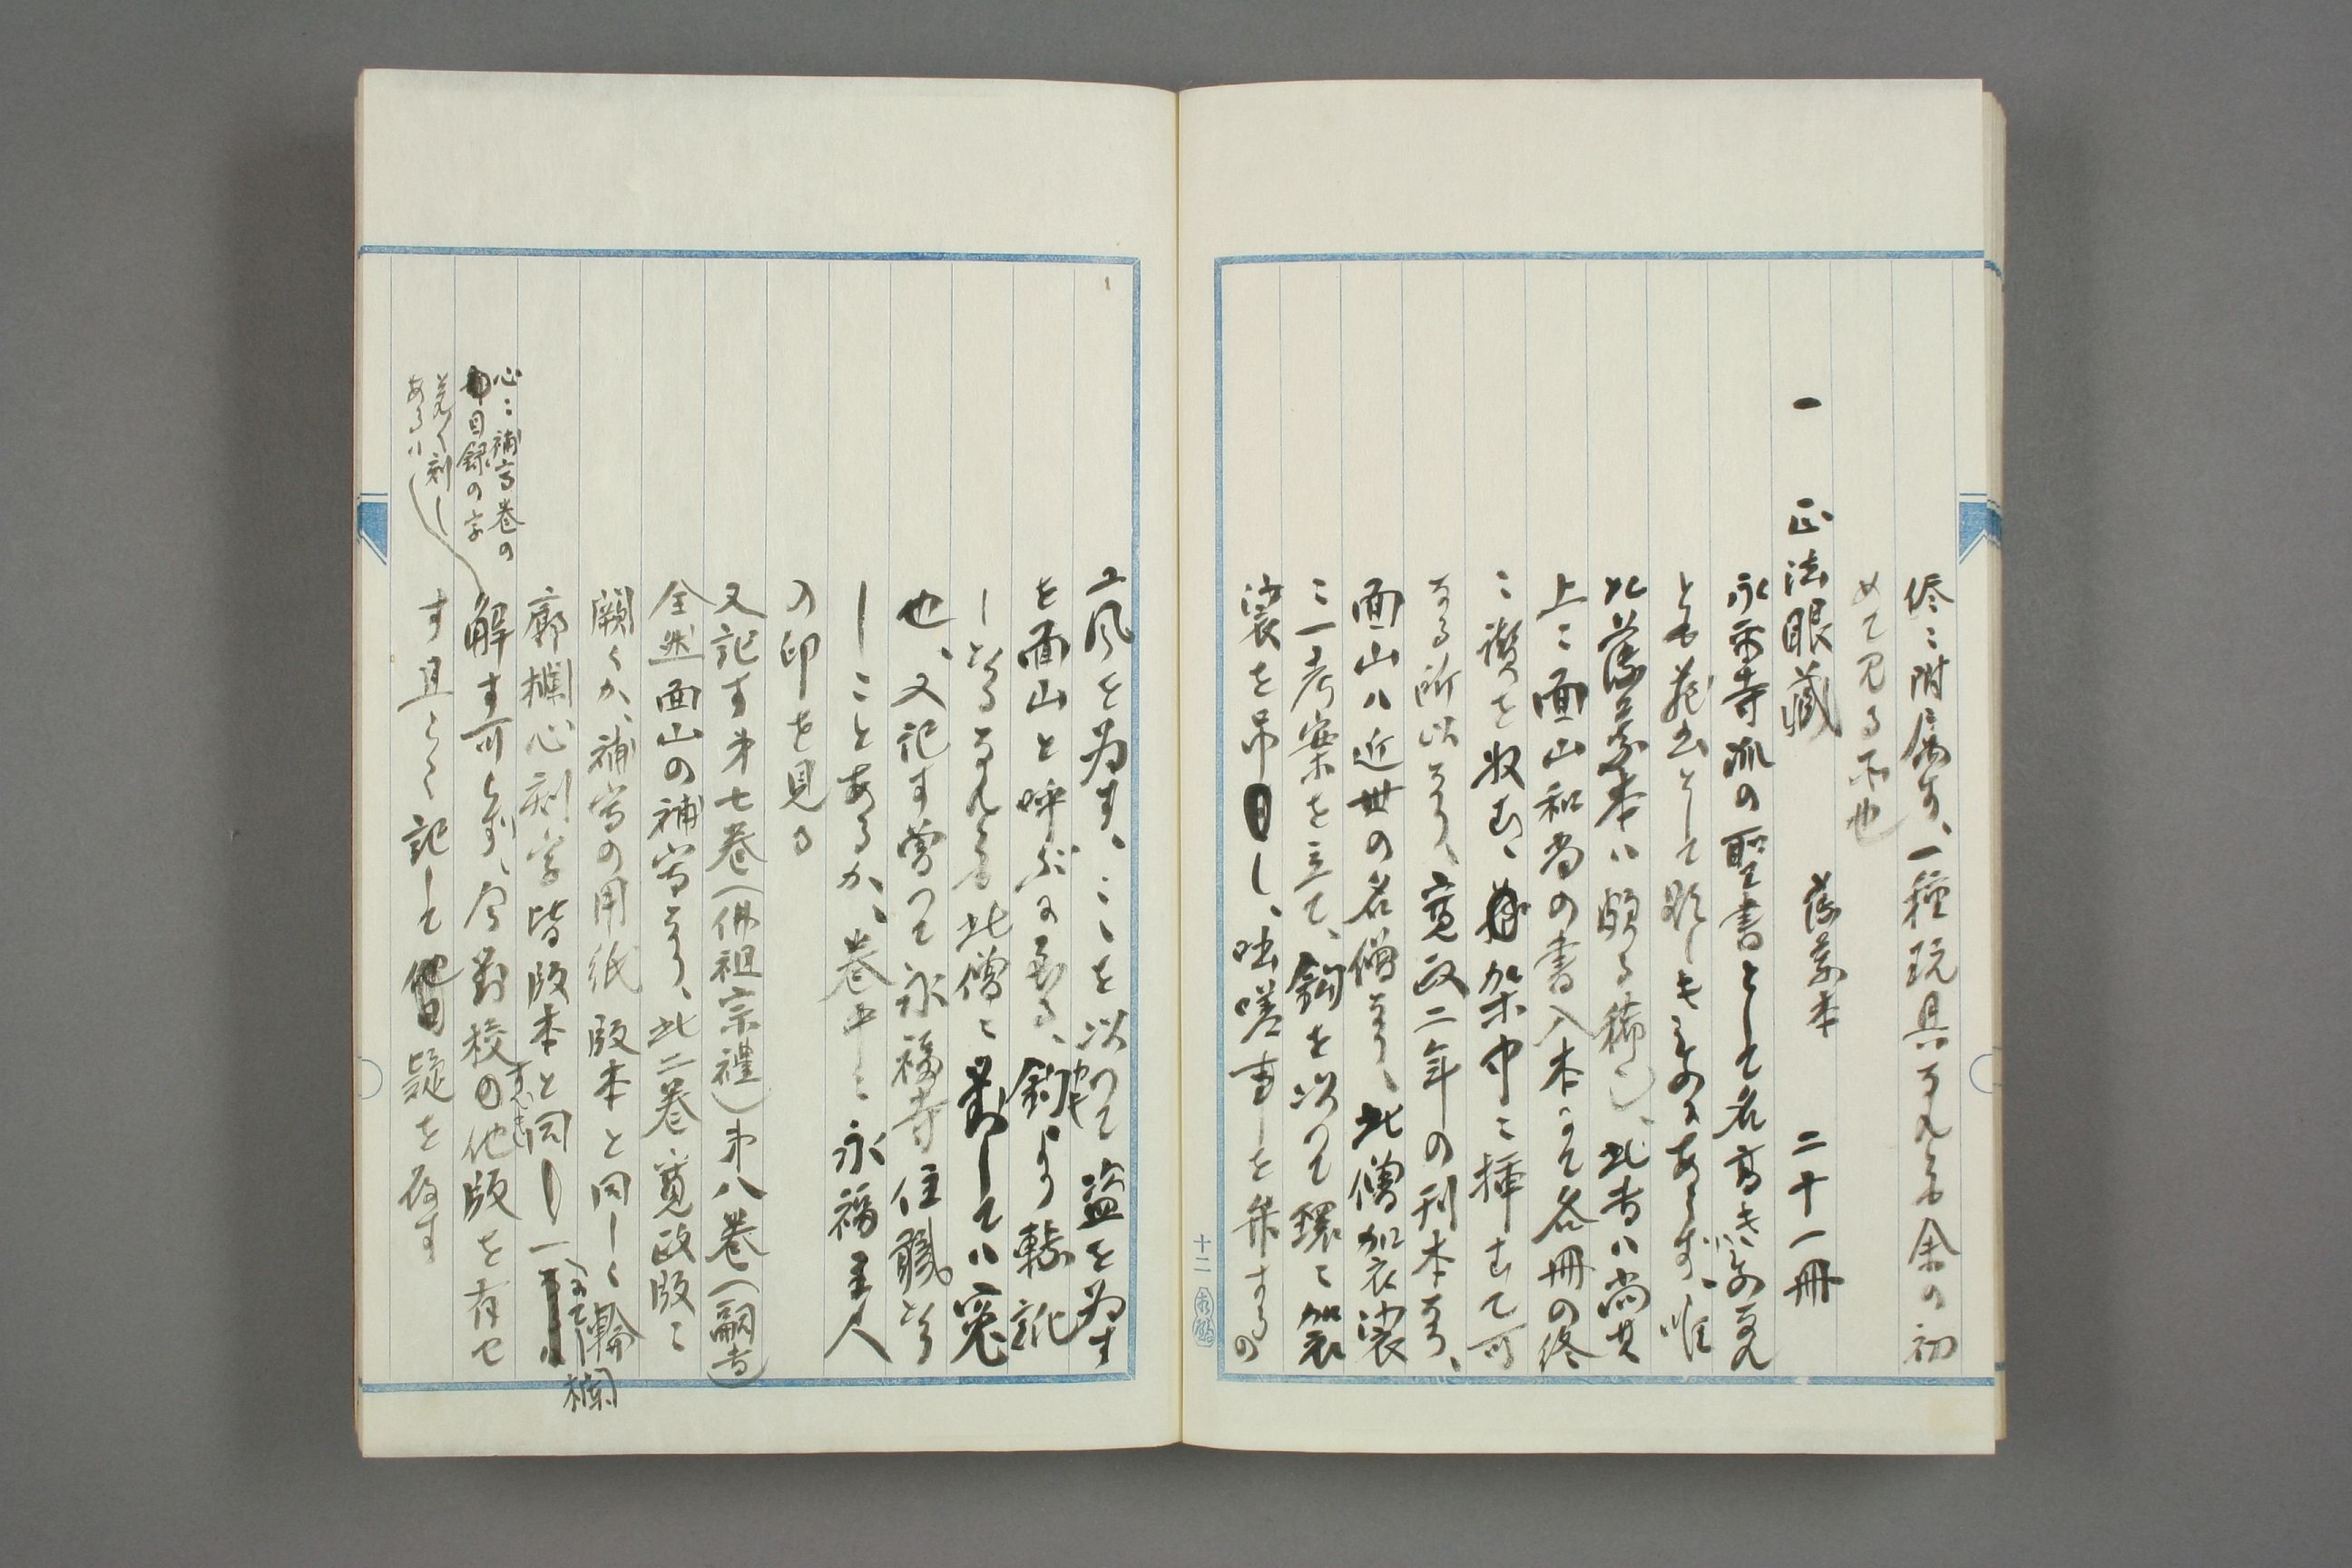 侭ニ附属す、一種玩具なれども余の初
めて見る所也
一 正法眼藏 薩摩本 二十一冊
永平寺派の聖書として名高きものなれ
ども蔵書として珍しきものにあらず、唯
此薩摩本ハ頗る稀也、此書ハ尚其
上ニ面山和尚の書入本にて各冊の終
ニ讚を收む、架中ニ挿むて可
なる所以なり、寛政二年の刊本なり、
面山ハ近世の名僧なり、此僧加衣沙衣
ニ一考案を立て、鉤を以つて環ニ加衣
沙衣を吊し、咄嗟事を弁するの
工風を為す、ここを以つて盗を為す
を面山と呼ぶに至る、鉤より轉訛
しとるなれども此僧に對してハ寃
也、又記す曽つて永福寺住職とな
りしことあるか、巻中に永福主人
の印を見る
又記す第七巻(佛祖宗禮)第八巻(嗣書)
全然面山の補写なり、此二巻寛政版ニ
闕くか、補写の用紙版本と同しく輪
廓欄心刻字皆版本と同し 欄
心ニ補写巻の
目録の字
く刻し
あるハ
解す可らず、今對校の他版を有せ
す且らく記して他日疑を存す
十二